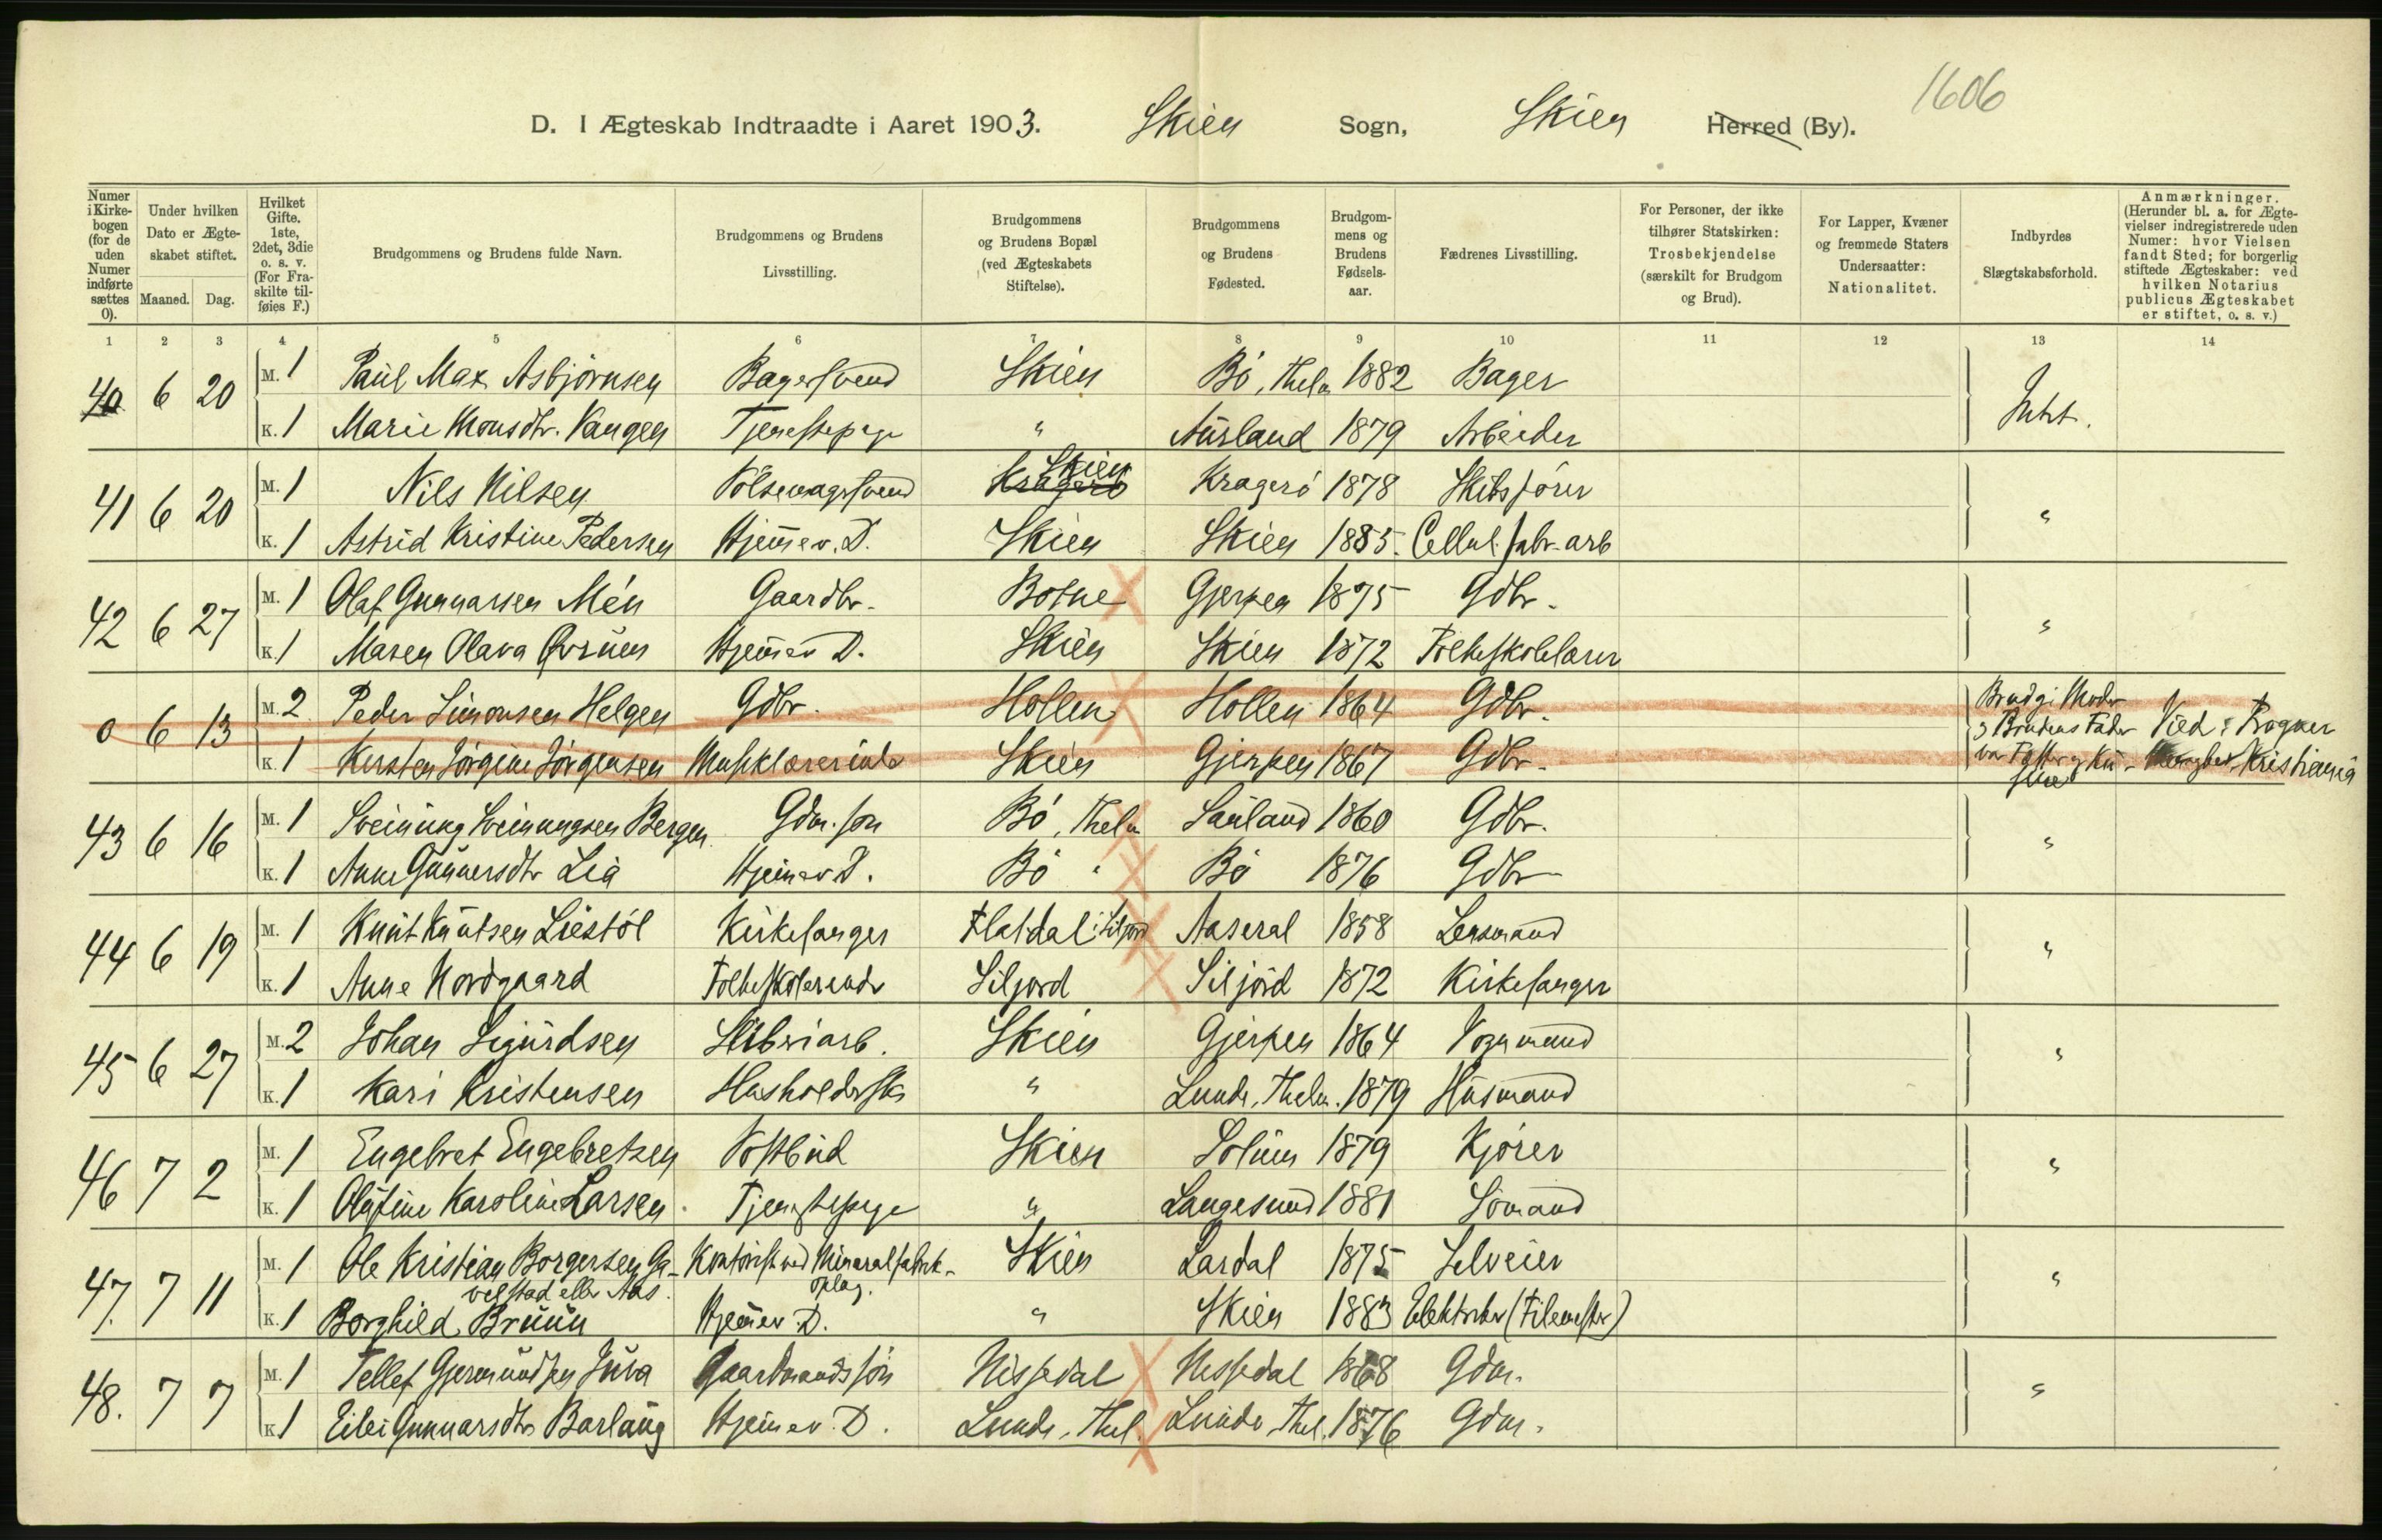 1606
D. I Ægteskab Indtraadte i Aaret 1903. Skien Sogn, Skien Herred (By).
Numer i Kirkebogen (for de uden Numer indførte sættes 0).
Under hvilken Dato er Ægteskabet stiftet.
Maaned. Dag.
Hvilket Gifte. 1ste, 2det, 3die o. s. v. (For Fraskilte tilføies F.)
Brudgommens og Brudens fulde Navn.
Brudgommens og Brudens Livsstilling.
Brudgommens og Brudens Bopæl (ved Ægteskabets Stiftelse).
Brudgommens og Brudens Fødested.
Brudgommens og Brudens Fødselsaar.
Fædrenes Livsstilling.
For Personer, der ikke tilhører Statskirken: Trosbekjendelse (særskilt for Brudgom og Brud).
For Lapper, Kvæner og fremmede Staters Undersaatter: Nationalitet.
Indbyrdes Slægtskabsforhold.
Anmærkninger. (Herunder bl. a. for Ægtevielser indregistrerede uden Numer: hvor Vielsen fandt Sted; for borgerlig stiftede Ægteskaber: ved hvilken Notarius publicus Ægteskabet er stiftet, o. s. v.)
1 2 3 4 5 6 7 8 9 10 11 12 13 14
40 6 20 M. 1 Paul Max Asbjørnsen Bagersvend Skien Bö, Thelm 1882 Bager Intet.
K. 1 Marie Monsdtr. Vangen Tjenestepige " Aurland 1879 Arbeider
41 6 20 M. 1 Nils Nilsen Pölsemagersvend Kragerö Skien Kragerö 1878 Skibsförer "
K. 1 Astrid Kristine Pedersen Hjemmev. D. Skien Skien 1885. Cellul. fabr. arb
42 6 27 M. 1 Olaf Gunnarsen Mén Gaardbr. Botne Gjerpen 1875 Gdbr. "
K. 1 Maren Olava Qvrum Hjemmev D. Skien Skien 1872 Folkeskolelærer
0 6 13 M. 2 Peder Simonsen Helgen Gdbr. Hollen Hollen 1864 Gdbr. Brudg. Moder
K. 1 Kirsten Jörgine Jörgensen Musiklærerinde Skien Gjerpen 1867 Gdbr. Brudens Fader Kristiania
43 6 16 M. 1 Sveinung Sveinungsen Bergen Gdm. sön Bö, Thelm Sauland 1860 Gdbr. "
K. 1 Anne Gunnersdtr Lia Hjemmev D. Bö " Bö 1876 Gdbr
44 6 19 M. 1 Knut Knutsen Liestöl Kirkesanger Flatdal i Siljord Aaseral 1858 Lensmand "
K. 1 Anne Nordgaard Siljord Siljord 1872 Kirkesanger
45 6 27 M. 2 Johan Sigurdsen Sliberiarb. Skien Gjerpen 1864 Vognmand "
K. 1 Kari Kristensen Husholderske " Lunde, Thelm. 1879 Husmand
46 7 2 M. 1 Engebret Engebretsen Postbud Skien Solum 1879 Kjörer "
K. 1 Olufine Karoline Larsen Tjenestepige " Langesund 1881 Sömand
47. 7 11 M. 1 Ole Kristian Borgersen Gavelstad eller Aas. Kontorist ved Mineralfabrik- Oplag. Skien Lardal 1875 Selveier "
K. 1 Borghild Bruun Hjemmev. D. " Skien 1883
48. 7 7 M. 1 Tellef Gjermundsen Juva Gaardmandssön Nissedal Nissedal 1868 Gdm. "
K. 1 Eilei Gunnarsdtr Barlaug Hjemmev. D. Lunde, Thel. Lunde, Thel. 1876 Gdm.